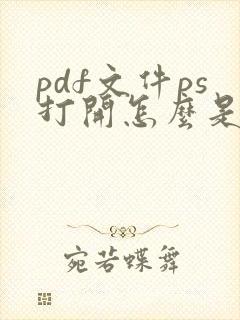 pdf文件ps
打開怎麽是
宛若蝶舞